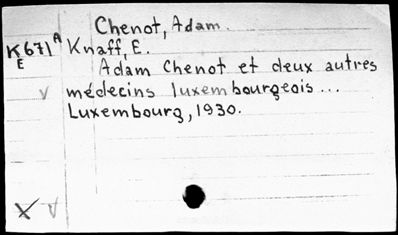 Chenot, Adam.
K671A Knaff, E.
E
Adam Chenot et deux autres
médecins luxembourgeois...
Luxembourg, 1930.